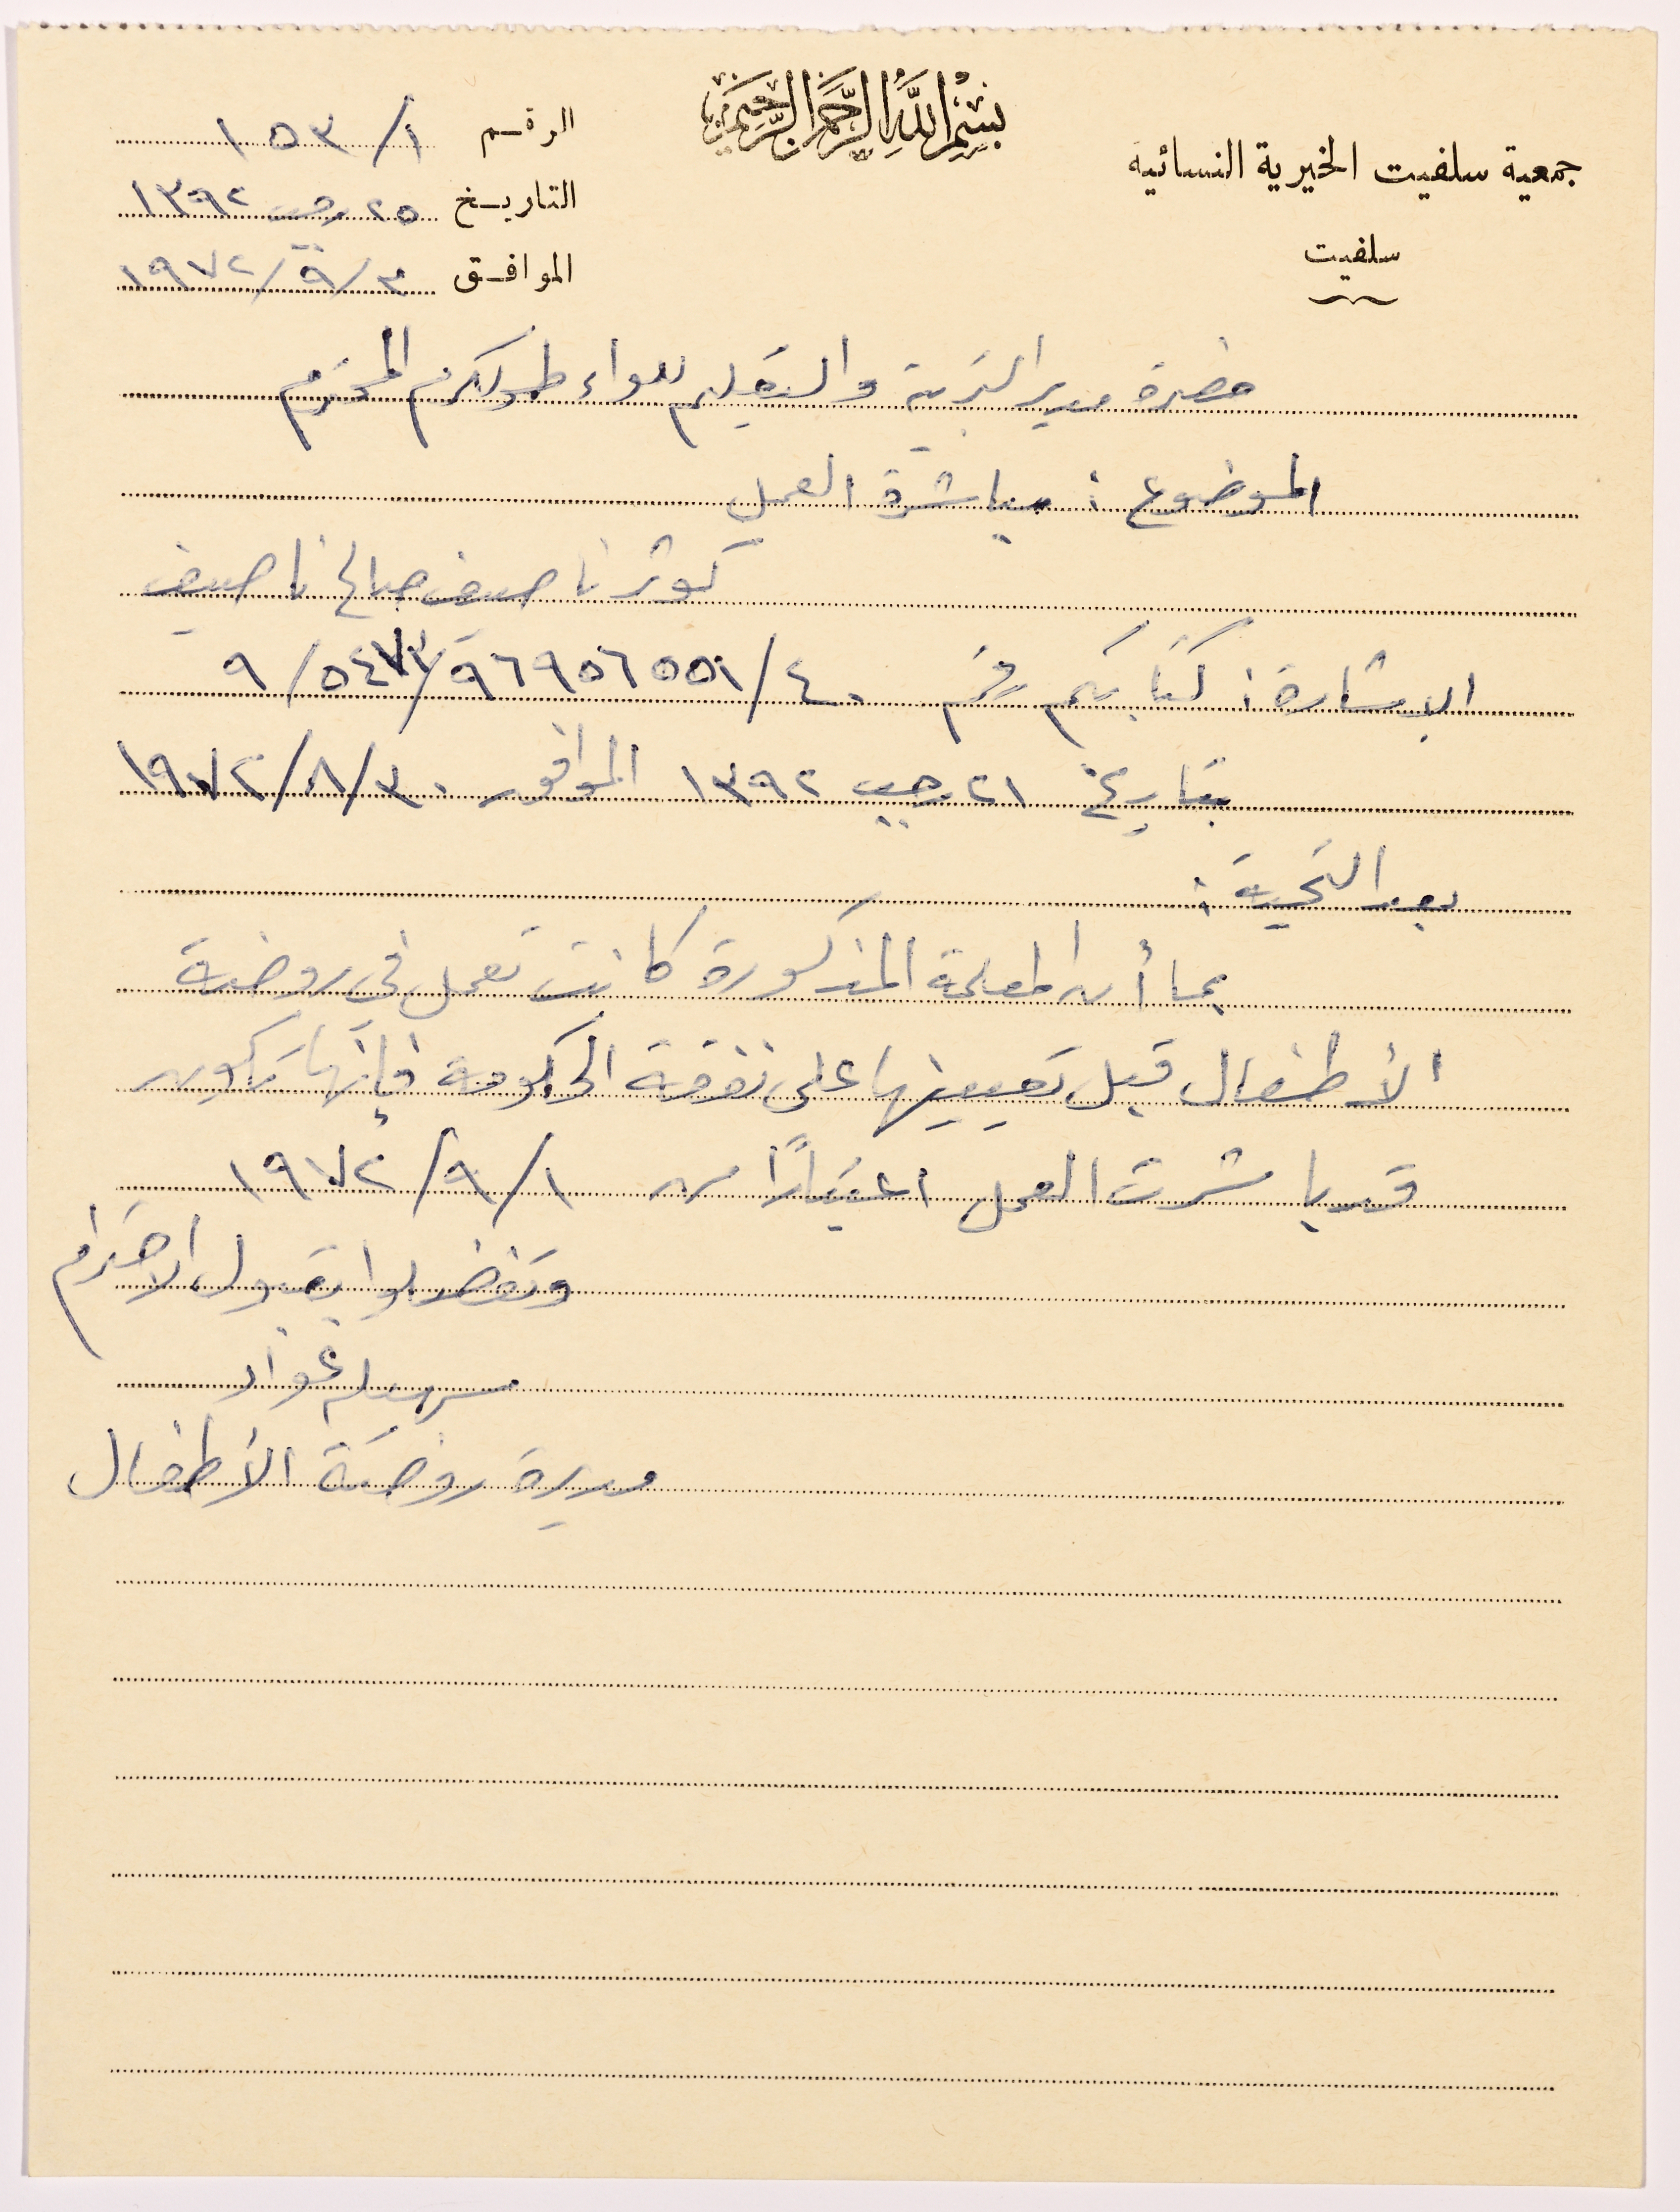 بسم الله الرحمن الرحيم
جمعية سلفيت الخيرية النسائية
سلفيت
الرقم ١٥٣/١
التاريخ ٢٥ رجب ١٣٩٢
الموافق ١٩٧٢/٩/٣
حضرة مدير التربية والتعليم للواء طولكرم المحترم
الموضوع : مباشرة العمل
كوثر ناصيف صالح ناصيف
الإشارة : كتابكم رقم
بتاريخ ٢١ رجب ١٣٩٢ الموافق ١٩٧٢/٨/٣٠
بعد التحية :
بما أن المعلمة المذكورة كانت تعمل في روضة
الأطفال قبل تعيينها على نفقة الحكومة فإنها تكون
قد باشرت العمل اعتبارًا من ١٩٧٢/٩/١
وتفضلوا بقبول الاحترام
سهيلة عواد
مديرة روضة الأطفال